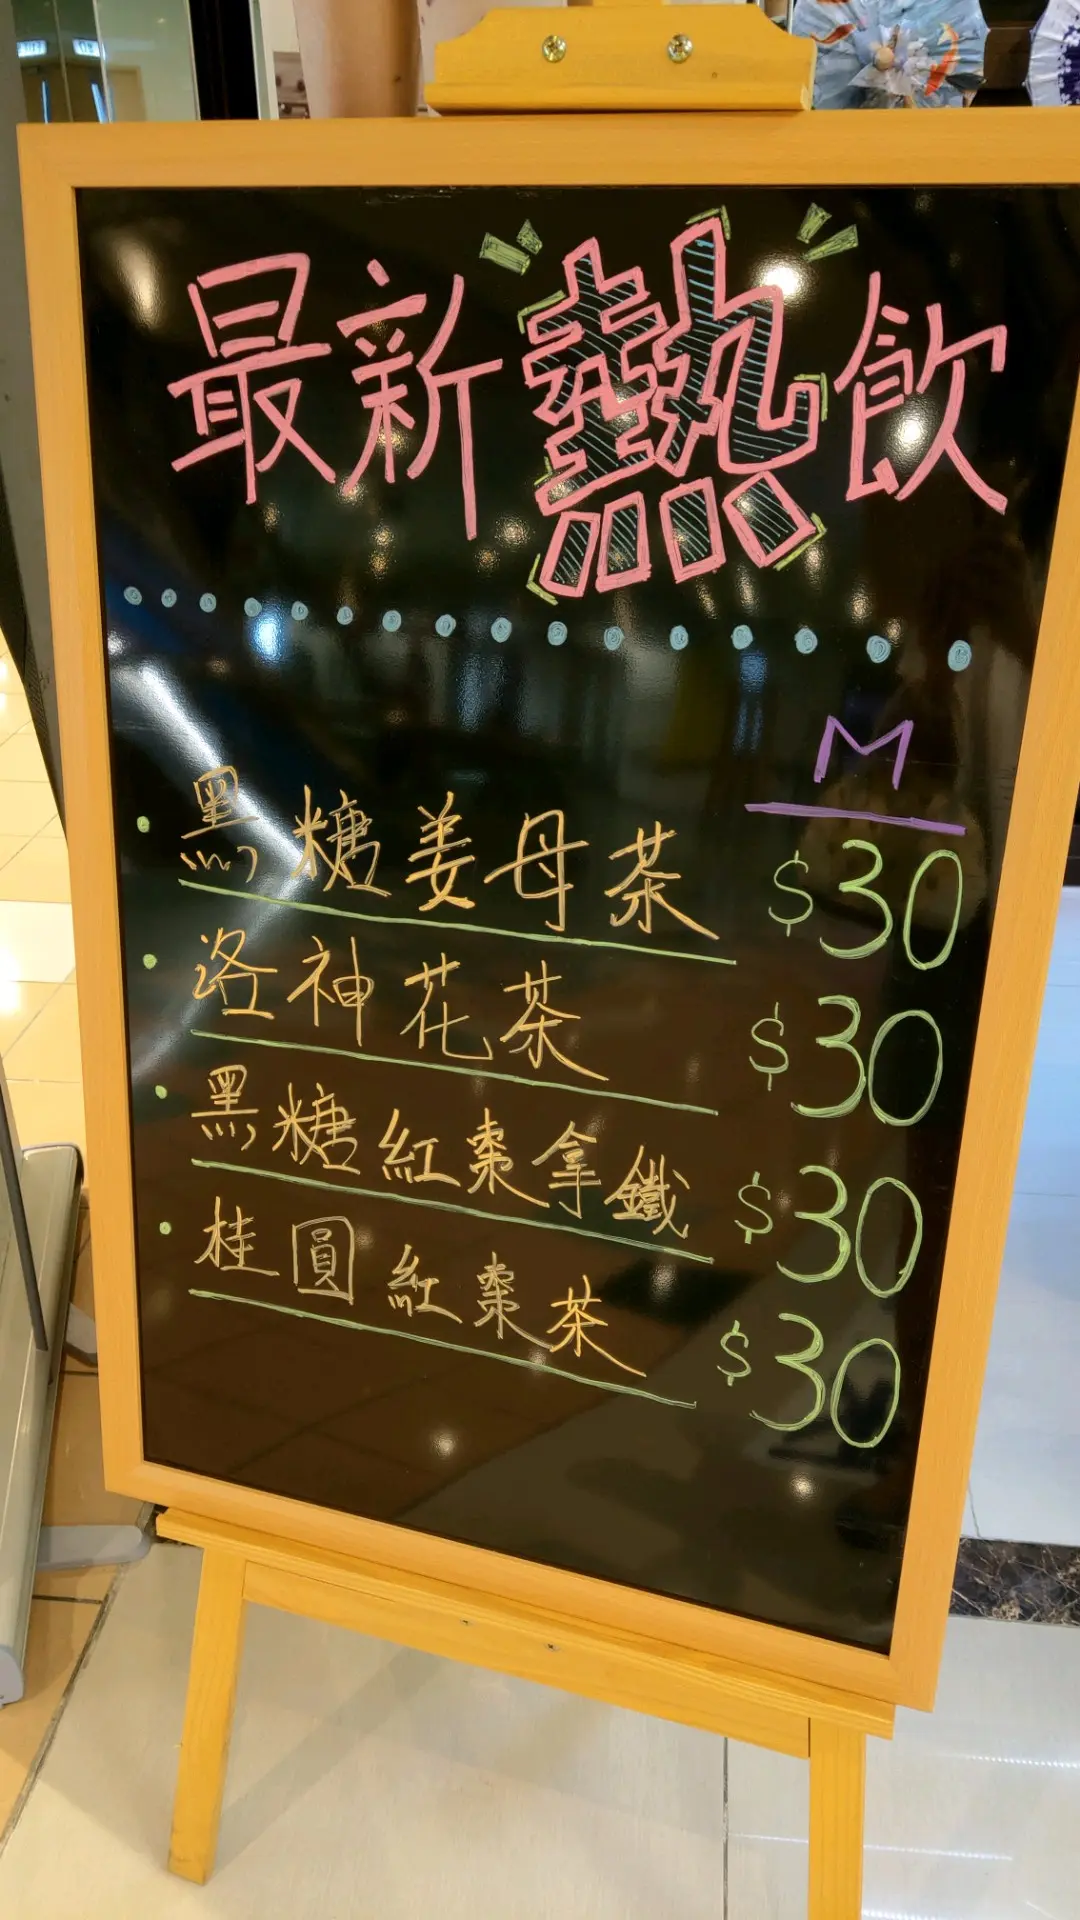 最新熱飲
M
黑糖姜母茶 $30
洛神花茶 $30
黑糖紅棗拿鐵 $30
桂圓紅棗茶 $30